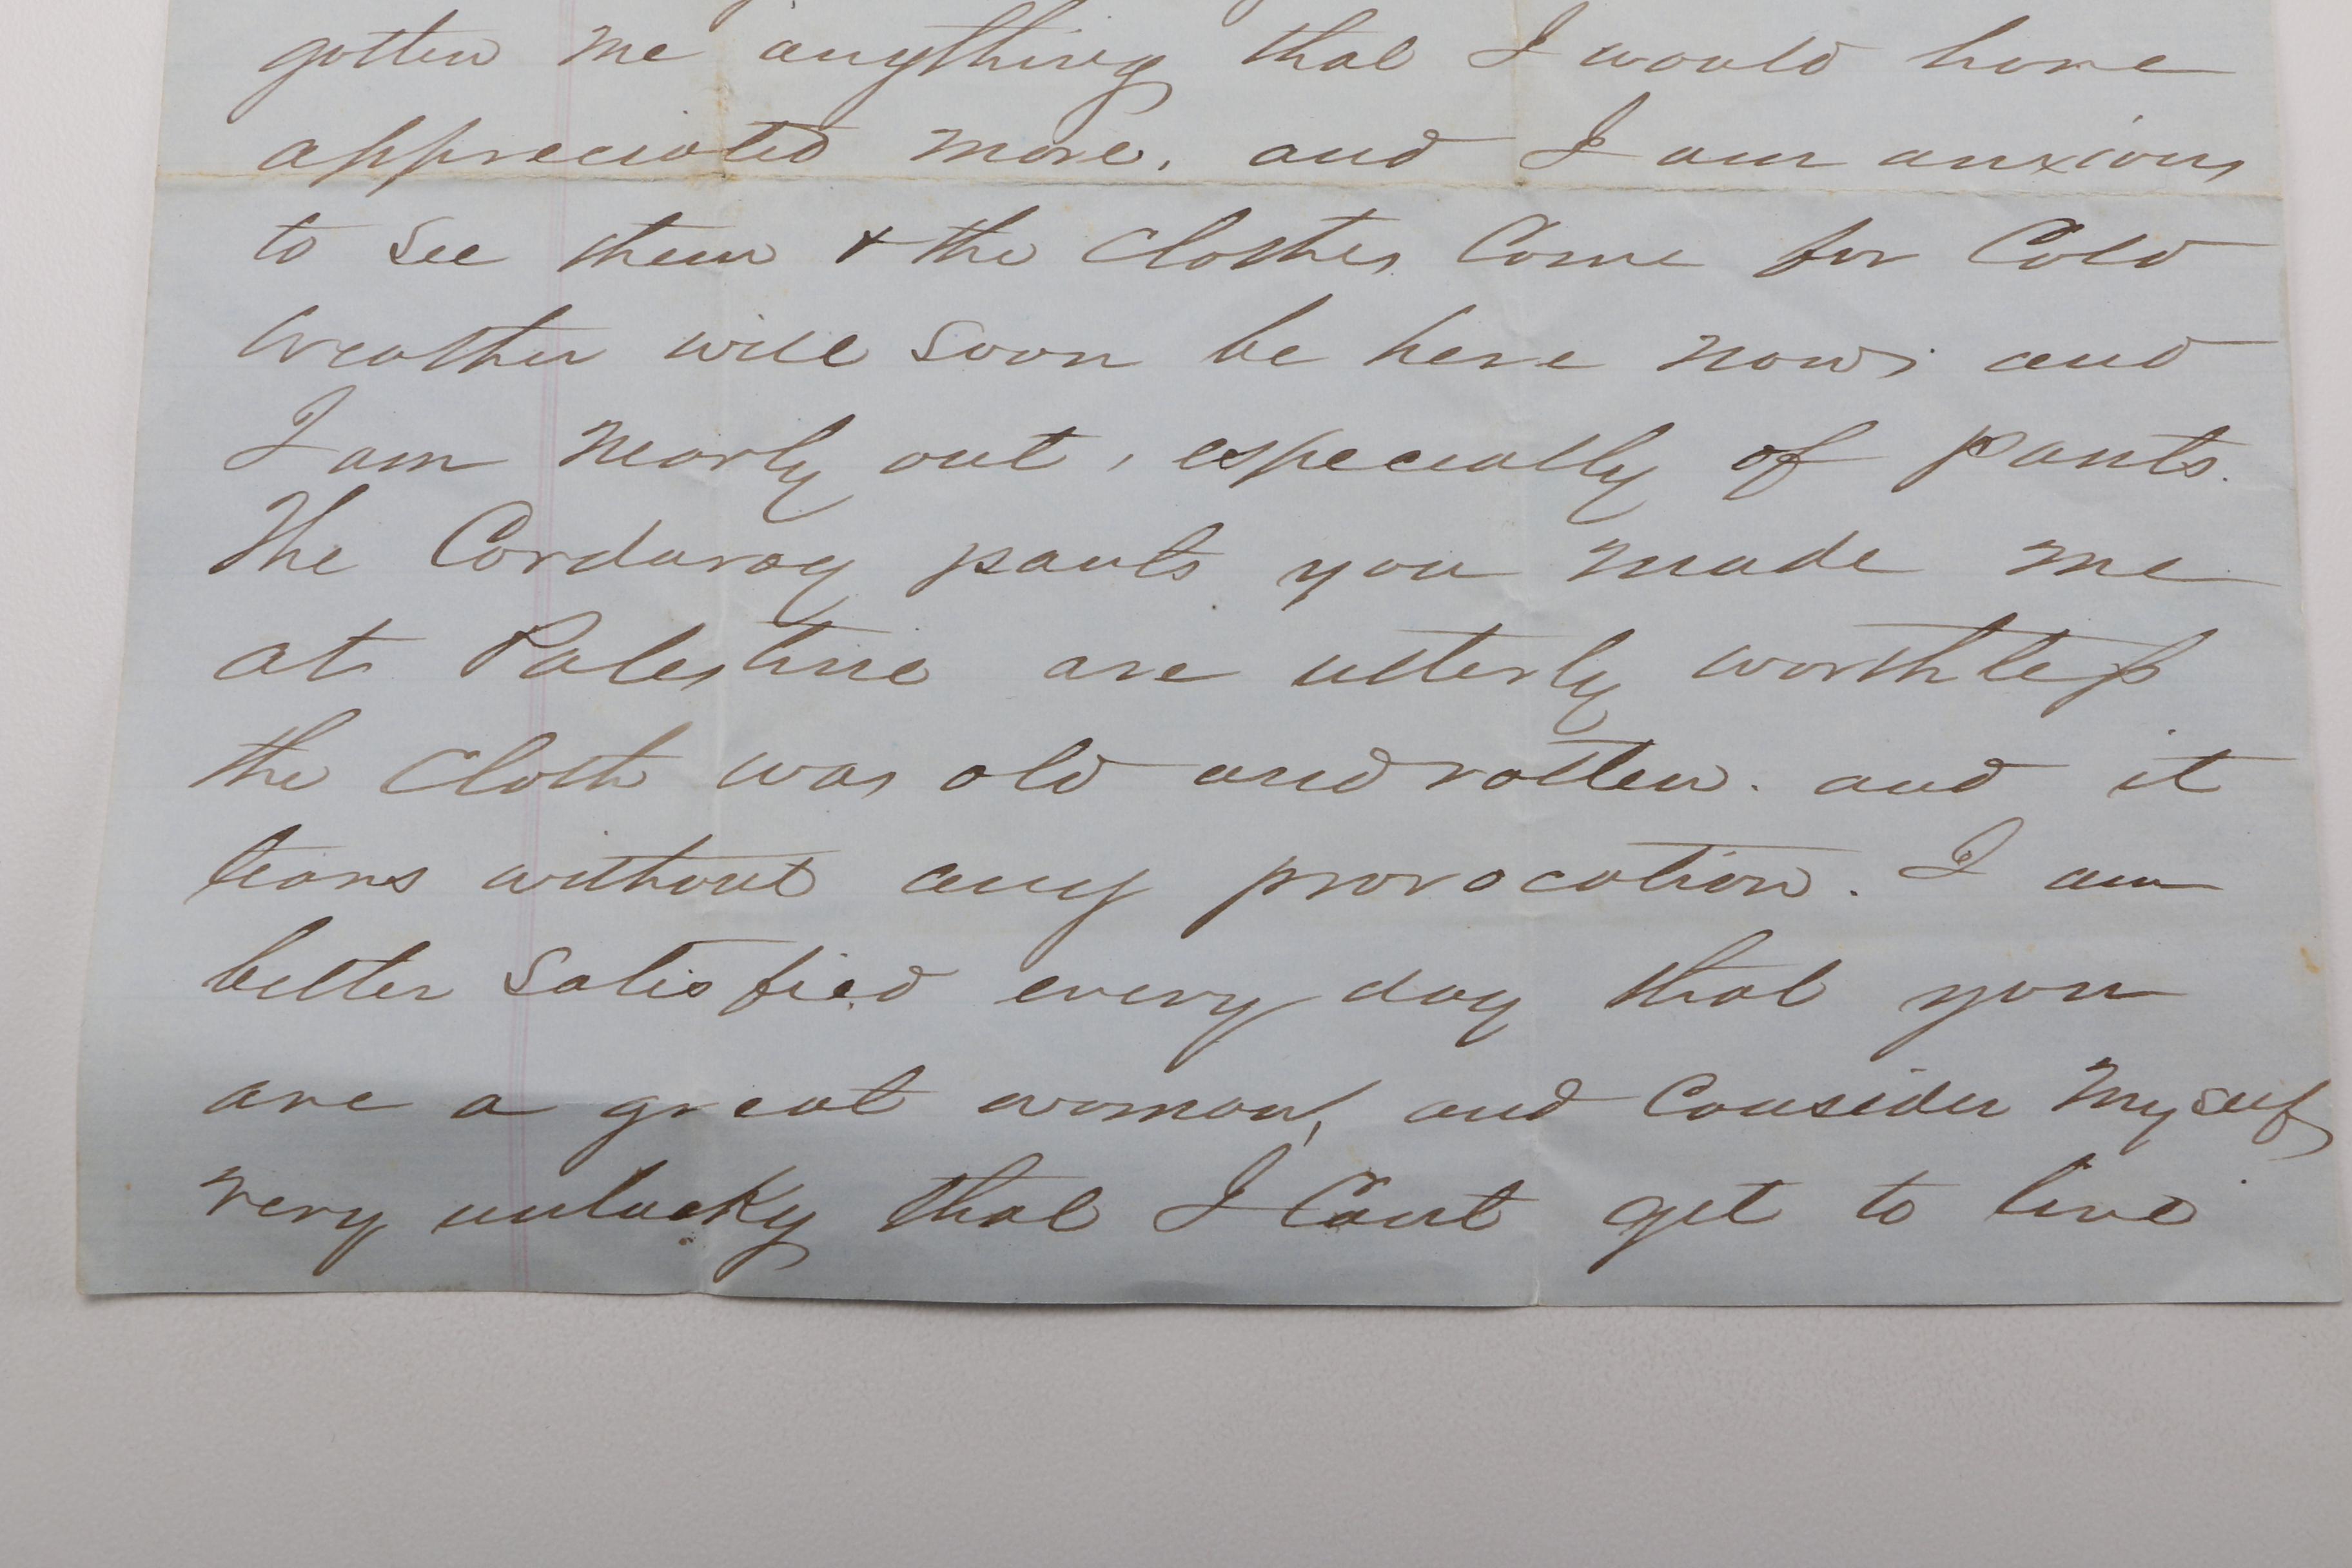 gotten me anything that I would have
appreciated more, and I am anxious
to see them & the clothes Come for Cold
weather will soon be here now, and
I am nearly out, especially of pants.
The Corduroy pants you made me
at Palestine are utterly worthless
the cloth was old and rotten. and it
tears without any provocation. I am
better satisfied every day that you
are a great woman, and Consider myself
very unlucky that I Cant get to live